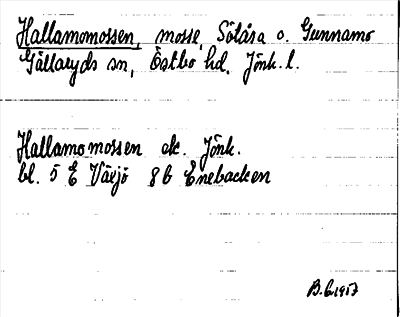 Hallamomossen, mosse, Sölåsa o. Gunnamo
Gällaryds sn, Östbo hd. Jönk. l.
Hallamomossen ek. Jönk.
bl. 5 E Växjö 8 b Enebacken
B. G. 1957